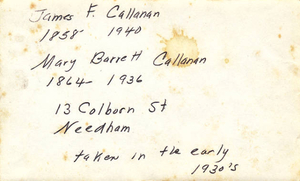 James F. Callanan
1858- 1940
Mary Barrett Callanan
1864- 1936
13 Colborn St
Needham
taken in the early
1930's